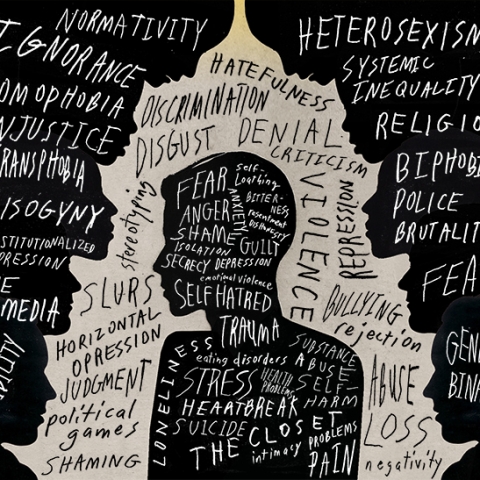 NORMATIVITY
IGNORANCE
OMOPHOBIA
NJUSTICE
RANSPHOBIA
ISOGYNY
STITUTIONALIZED
PRESSION
E
MEDIA
HATEFULNESS
DISCRIMINATION
DISGUST
DENIAL
CRITICISM
stereotyping
VIOLENCE
REPRESSION
SLURS
HORIZONTAL
OPRESSION
JUDGMENT
political
games
SHAMING
BULLYING
rejection
ABUSE
LOSS
negativity
HETEROSEXISM
SYSTEMIC
INEQUALITY
RELIGIO
BIPHOBI
POLICE
BRUTALIT
FEA
GEN
BINA
FEAR
ANGER
SHAME
ISOLATION
SECRECY
ANXIETY
self-
loathing
BITTER-
NESS
resentment
DISHONESTY
GUILT
DEPRESSION
emotional violence
SELF HATRED
TRAUMA
LONELINESS
eating disorders
STRESS
HEALTH
PROBLEMS
SUBSTANCE
ABUSE
SELF-
HARM
HEARTBREAK
SUICIDE
THE CLOSET
intimacy
PROBLEMS
PAIN